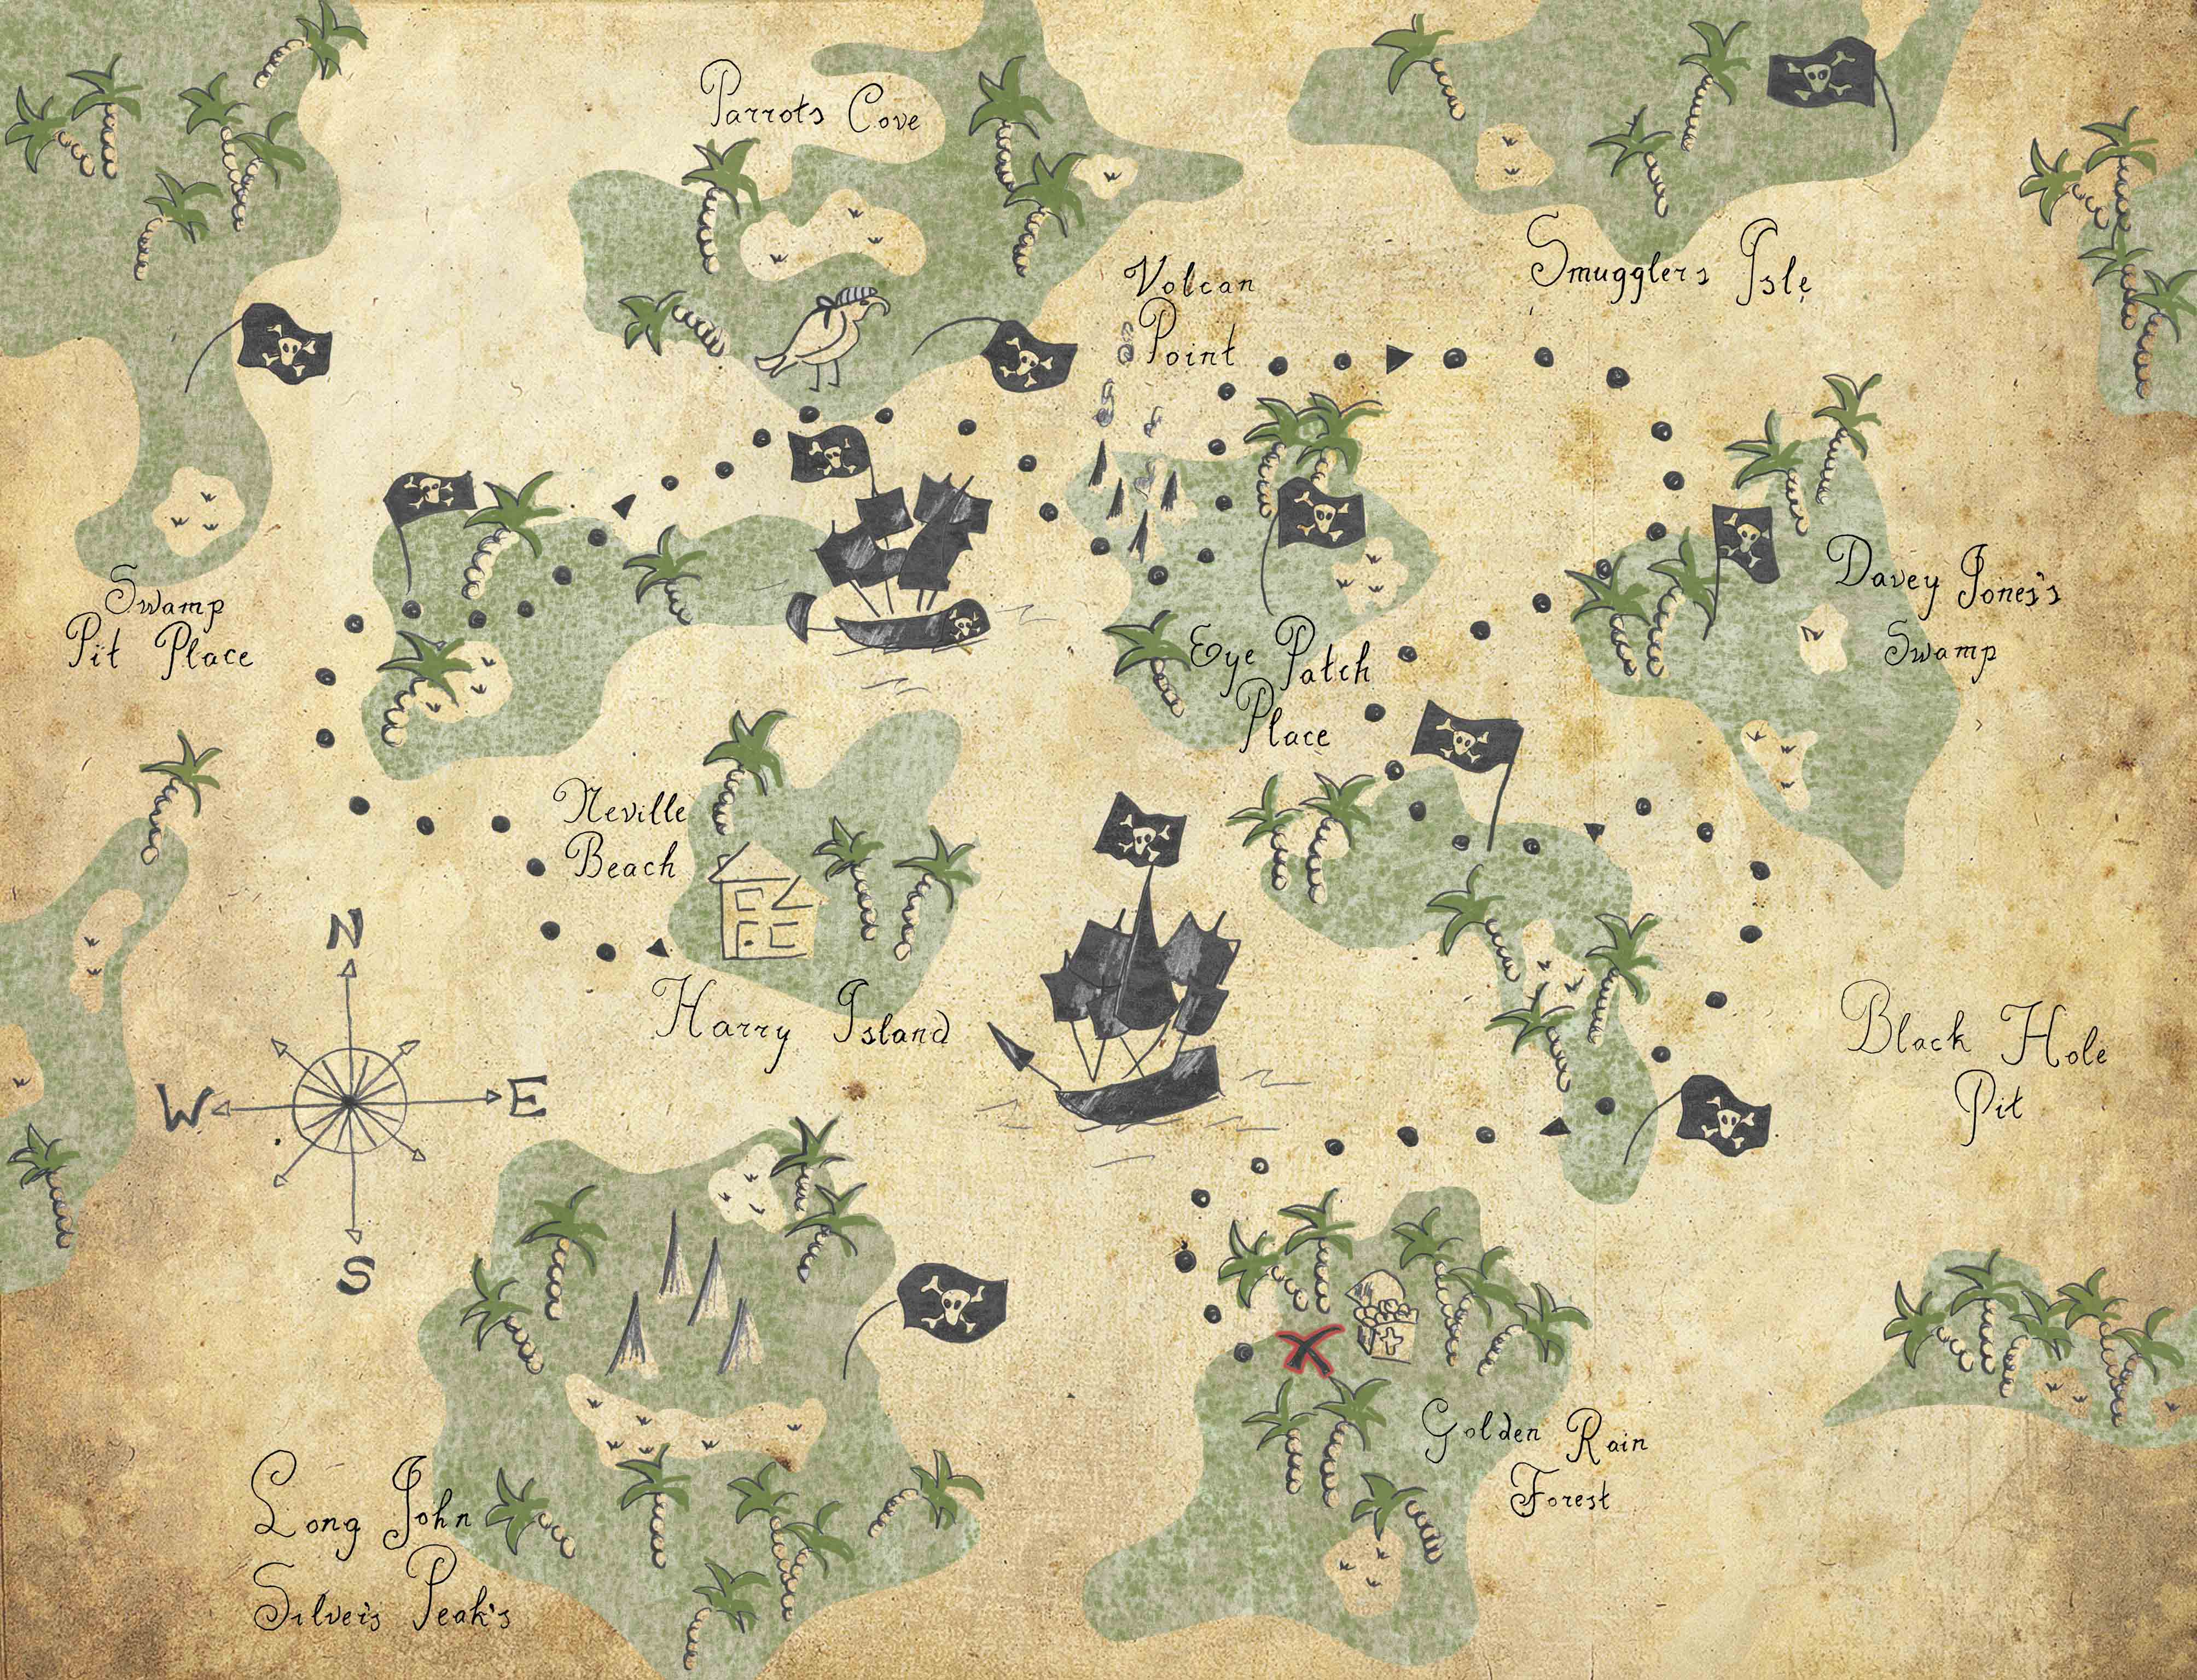 Parrots Cove
Volcan
Point
Smugglers Isle
Swamp
Pit Place
Davey Jones's
Swamp
Eye Patch
Place
Neville
Beach
Harry Island
N
W
E
S
Black Hole
Pit
Golden Rain
Forest
Long John
Silver's Peak's